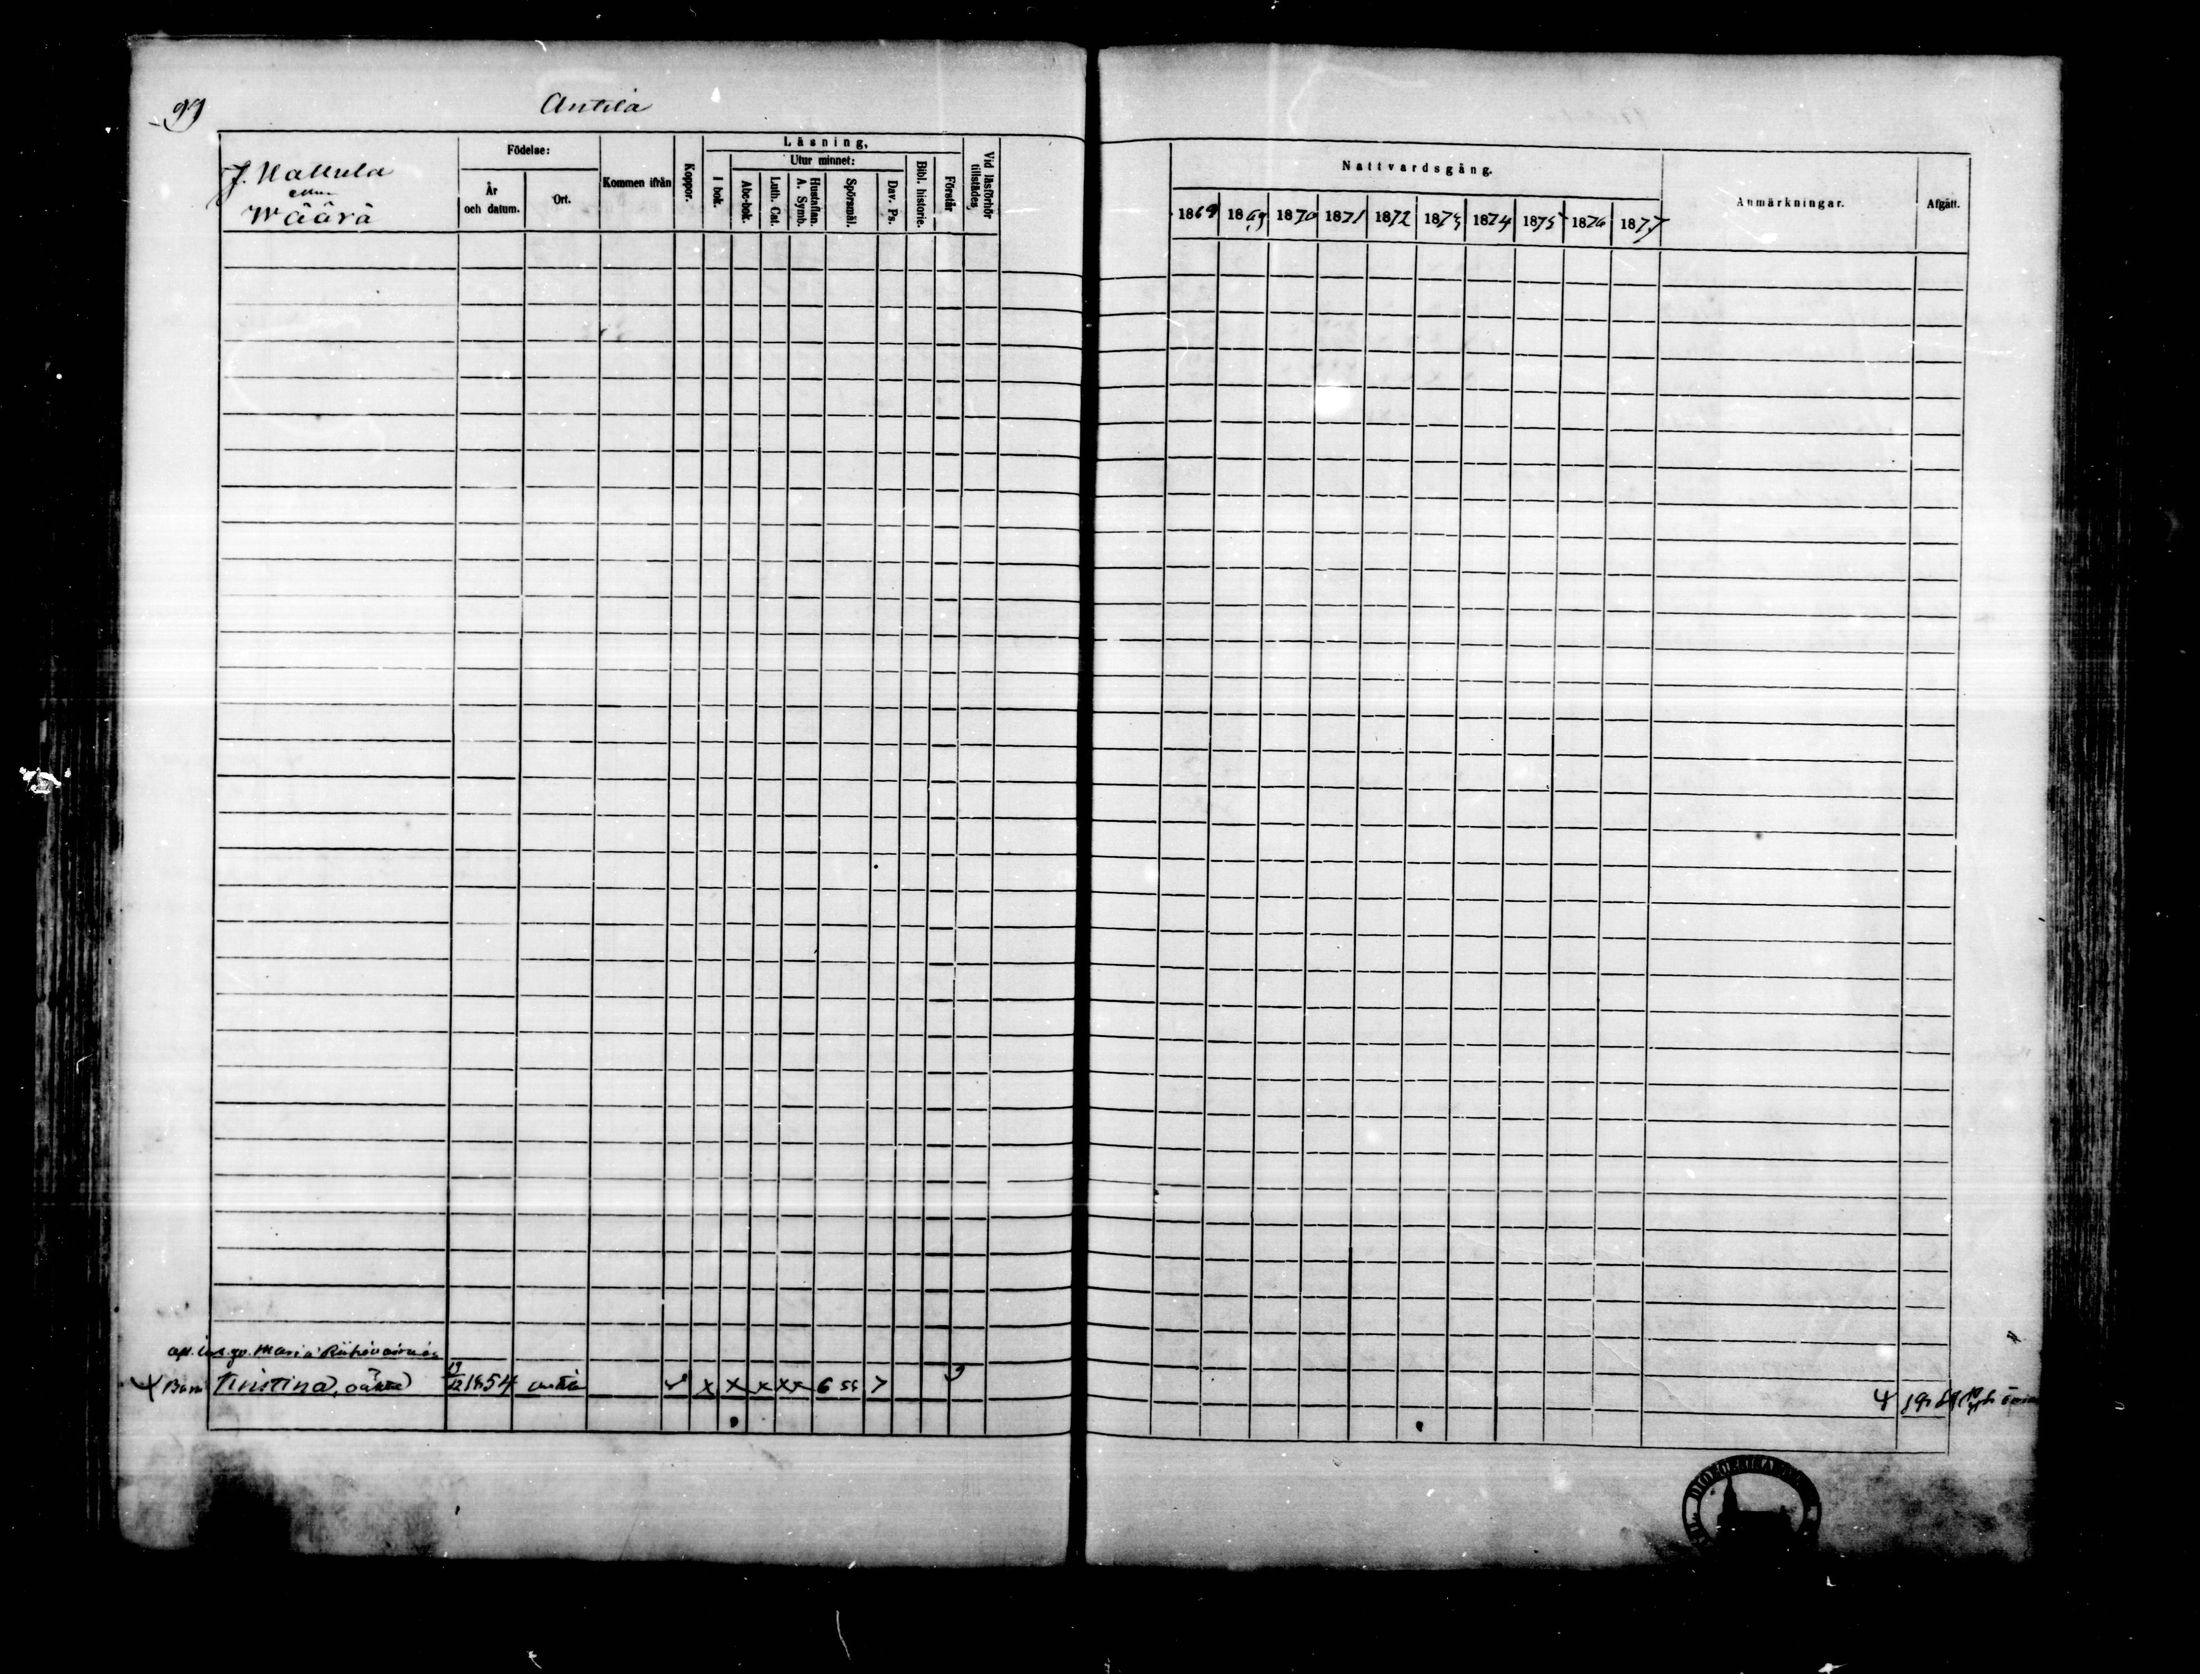 99
Antila
J. Hallula
eller
Wäärä
Födelse:
År och datum.
Ort.
Kommen ifrån
Koppor.
Läsning,
I bok.
Utur minnet:
Abc-bok.
Luth. Cat.
Hustaflan. A. Symb.
Spörsmål.
Dav. Ps.
Bibl. historie.
Förstår
Vid läsförhör tillstädes
Nattvardsgång.
1868 1869 1870 1871 1872 1873 1874 1875 1876 1877
Anmärkningar.
Afgått.
Maria
Barn Kristina, oäkta 19/12 1854 Antila v x x x xx 6 ss 7 9